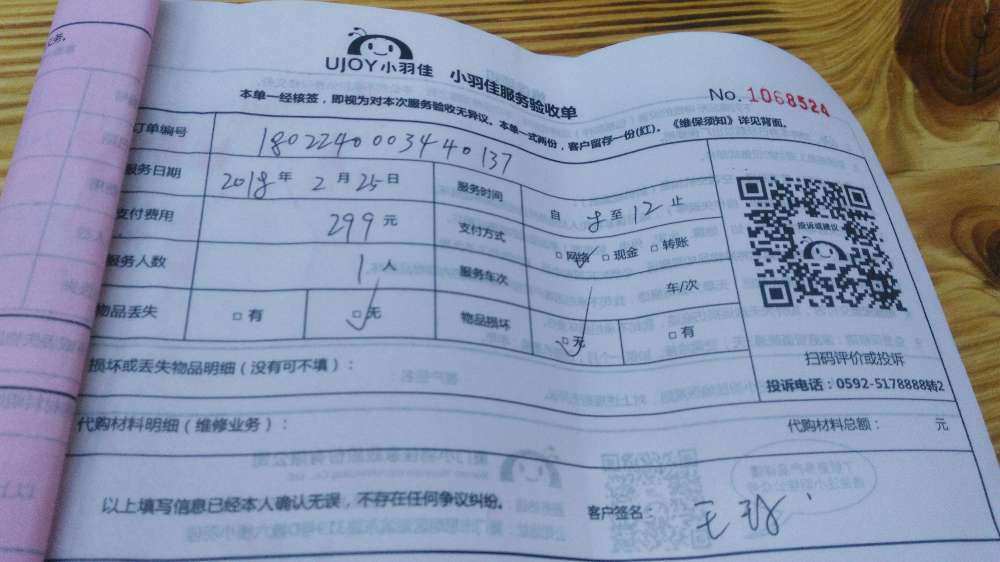 UJOY小羽佳 小羽佳服务验收单
No. 1068524
本单一经核签，即视为对本次服务验收无异议。本单一式两份，客户留存一份(红)。《维保须知》详见背面。
订单编号 180224000344 0137
服务日期 2018年2月25日 服务时间 自 至12止
支付费用 299元 支付方式 □网络 □现金 □转账
服务人数 1人 服务车次 车/次
物品丢失 □有 □无 物品损坏 □无 □有
投诉或建议
扫码评价或投诉
投诉电话：0592-5178888转2
损坏或丢失物品明细（没有可不填）：
代购材料明细（维修业务）： 代购材料总额： 元
以上填写信息已经本人确认无误，不存在任何争议纠纷。 客户签名： 王